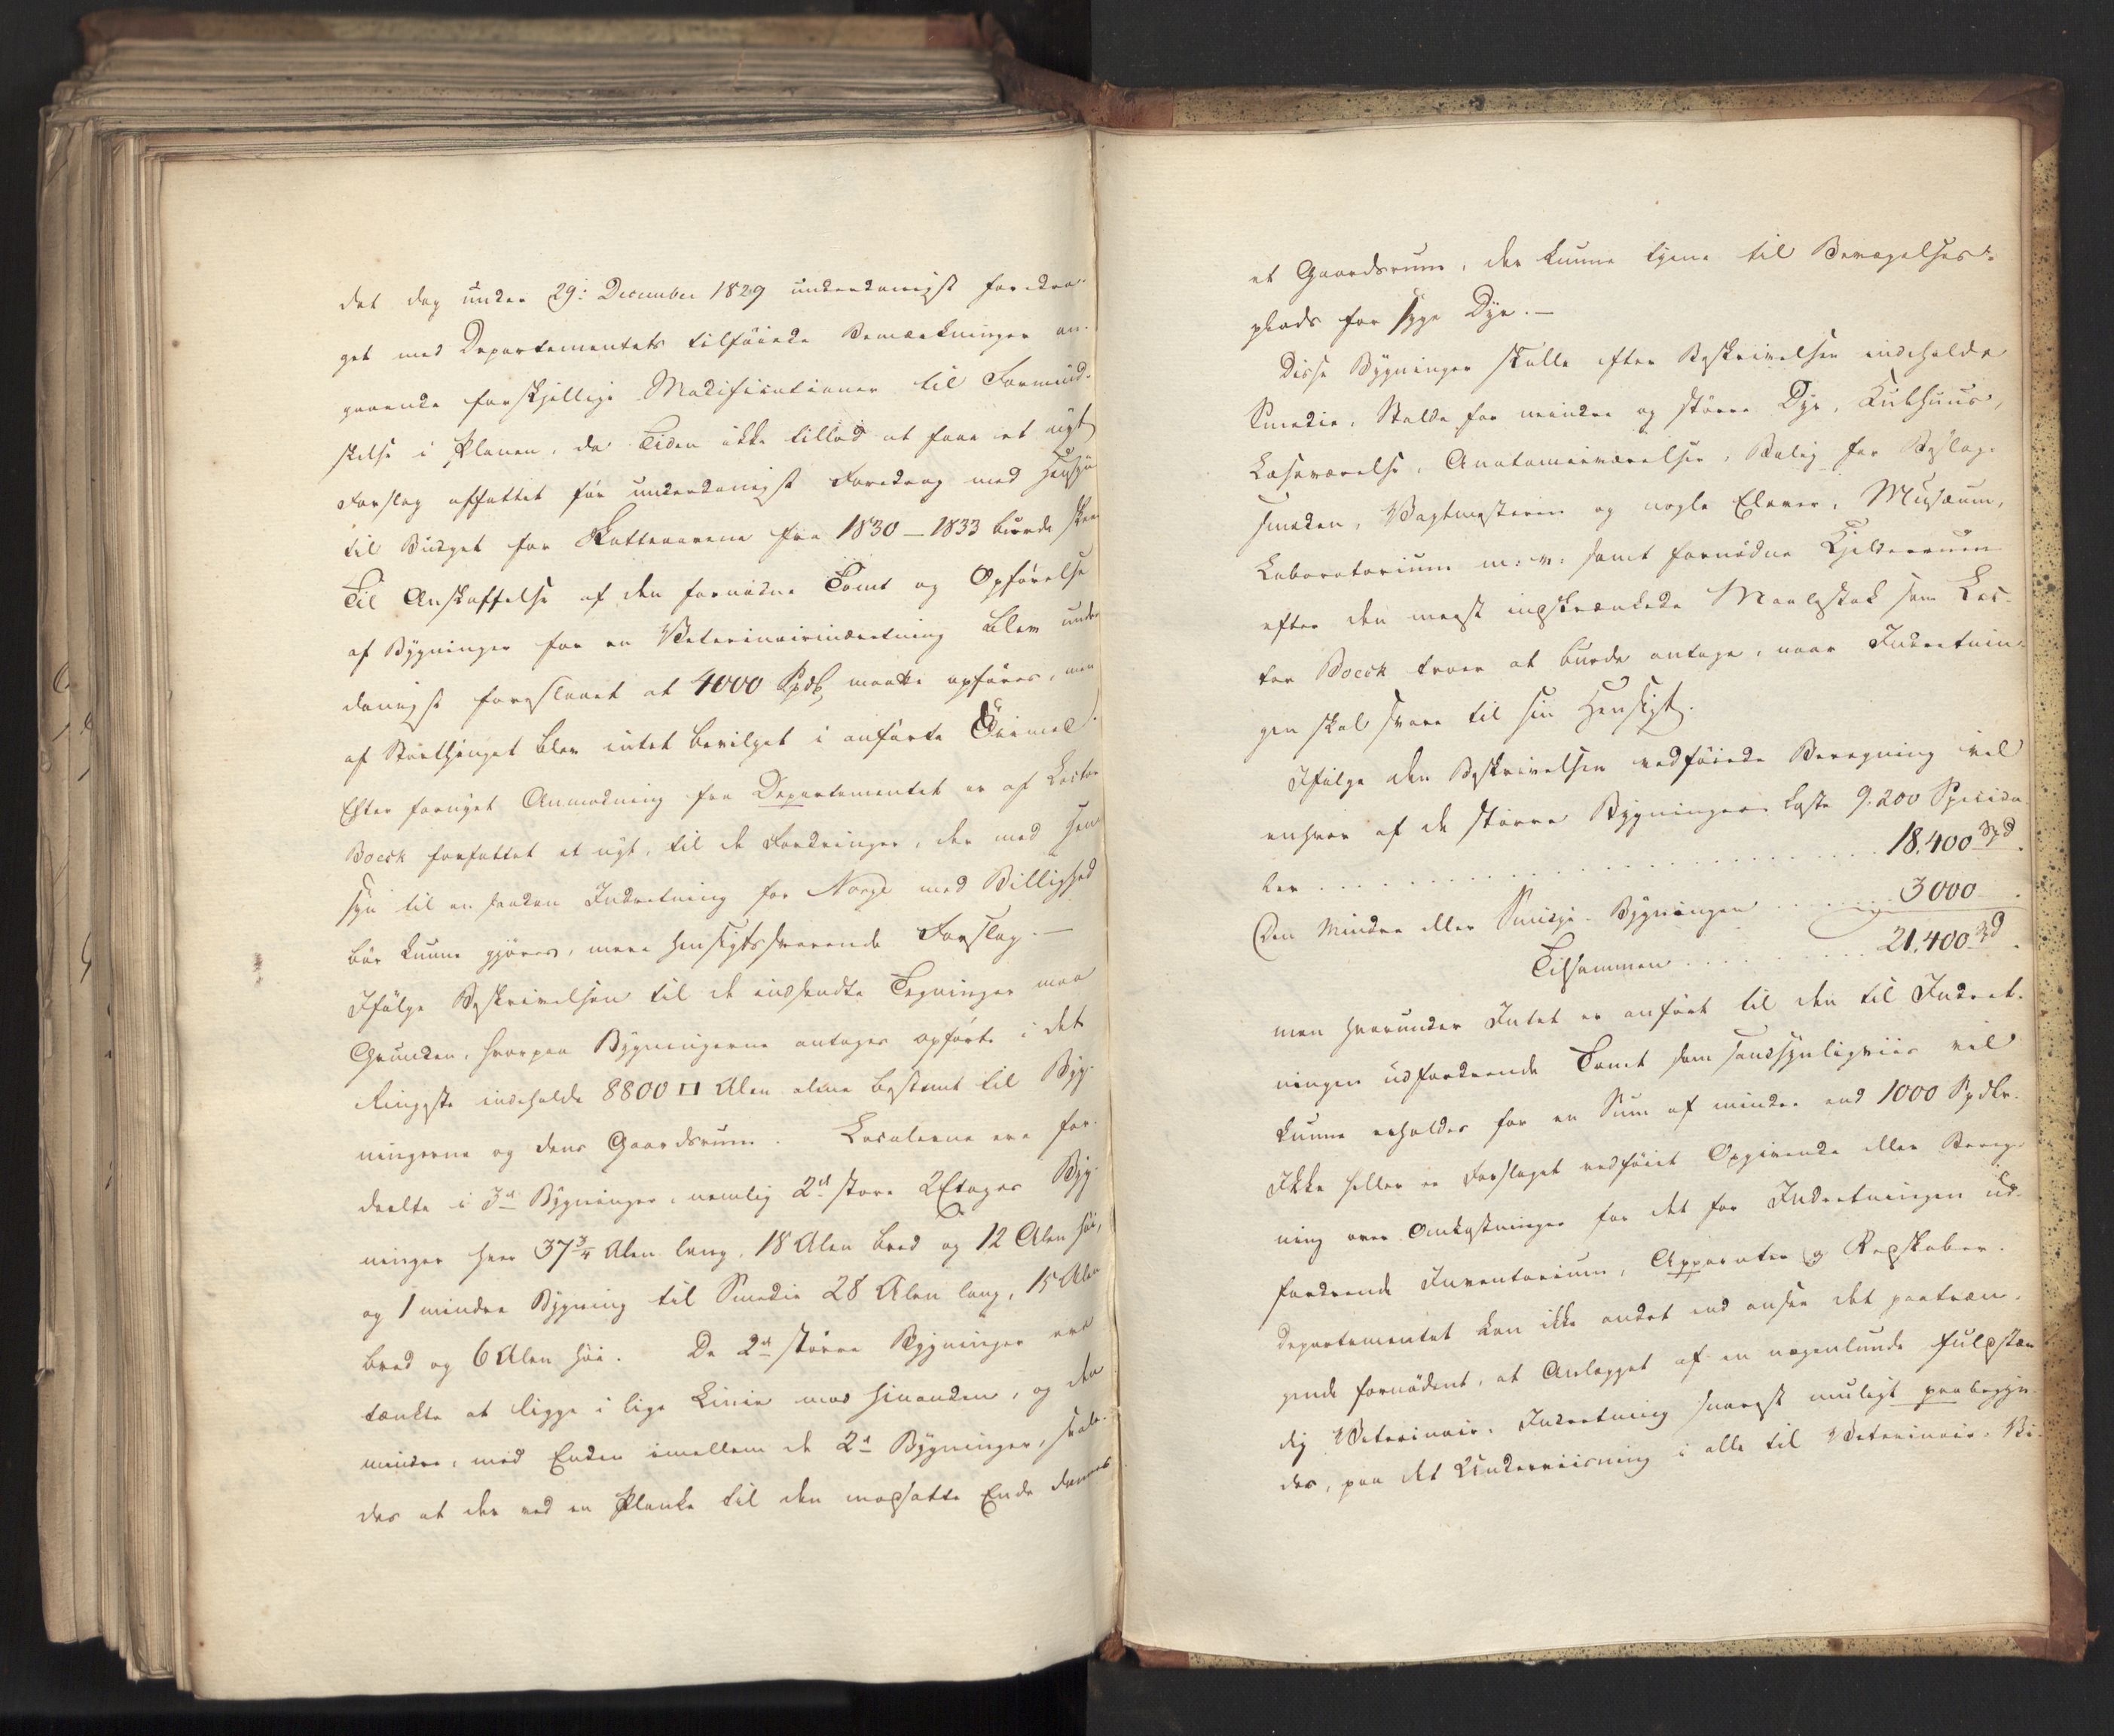 det dog under 29: December 1829 underdanigst foredra-
get med Departementets tilføiede Bemærkninger an-
gaaende forskjellige Modificationer til Formind-
skelse i Planen, da Tiden ikke tillod at faae et nyt
Forslag affattet før underdanigst Foredrag med Hensyn
til Budget for Skatteaarene fra 1830–1833 burde skee
Til Anskaffelse af den fornødne Tomt og Opførelse
af Bygninger for en Veterinairindretning blev under
danigst foreslaaet at 4000 Spdlr maatte opføres, men
af Storthinget blev intet bevilget i anførte Øiemed.
Efter fornyet Anmodning fra Departementet er af Lector
Boeck forfattet et nyt, til de Fordringer, der med Hen
syn til en saadan Indretning for Norge med Billighed
bør kunne gjøres, mere hensigtssvarende Forslag. —
Ifølge Beskrivelsen til de indsendte Tegninger maa
Grunden, hvorpaa Bygningerne antages opførte i det
Ringeste indeholde 8800 □ Alen alene bestemt til Byg-
ningerne og dens Gaardsrum. Localerne ere for-
deelte i 3de Bygninger, nemlig 2de store 2 Etages Byg-
ninger hver 37¾ Alen lang, 18 Alen bred og 12 Alen høi,
og 1 mindre Bygning til Smedie 28 Alen lang, 15 Alen
bred og 6 Alen høi. De 2de større Bygninger ere
tænkte at ligge i lige Linie mod hinanden, og den
mindre, med Enden imellem de 2de Bygninger, saale-
des at der ved en Planke til den modsatte Ende dannes
et Gaardsrum, der kunne tjene til Bevægelses-
plads for syge Dyr. —
Disse Bygninger skulle efter Beskrivelsen indeholde
Smedie, Stalde for mindre og større Dyr, Kulhuus,
Læseværelse, Anatomieværelser, Bolig for Beslag-
smeden, Vagtmesteren og nogle Elever, Musæum,
Laboratorium m: v: samt fornødne Kjelderrum
efter den meest indskrænkede Maalestok som Lec-
tor Boeck troer at burde antage, naar Indretnin-
gen skal svare til sin Hensigt.
Ifølge den Beskrivelsen vedføiede Beregning vil
enhver af de større Bygninger koste 9.200 Specieda
ler . . . . . . . . . . . . . . . . . . 18.400 Spd.
Den Mindre eller Smidje-Bygningen . . . . . . 3000 .
Tilsammen . . . . . . . . 21.400 Spd.
men hvorunder Intet er anført til den til Indret-
ningen udfordrende Tomt som sandsynligviis vil
kunne erholdes for en Sum af mindre end 1000 Spdlr.
Ikke heller er Forslaget vedføiet Opgivende eller Bereg-
ning over Omkostninger for det for Indretningen ud-
fordrende Inventarium, Apparater og Redskaber.
Departementet kan ikke andet end ansee det paatræn-
gende fornødent, at Anlægget af en nogenlunde fuldstæn
dig Veterinair-Indretning snarest muligt paabegyn-
des, paa det Underviisning i alle til Veterinair-Vi-